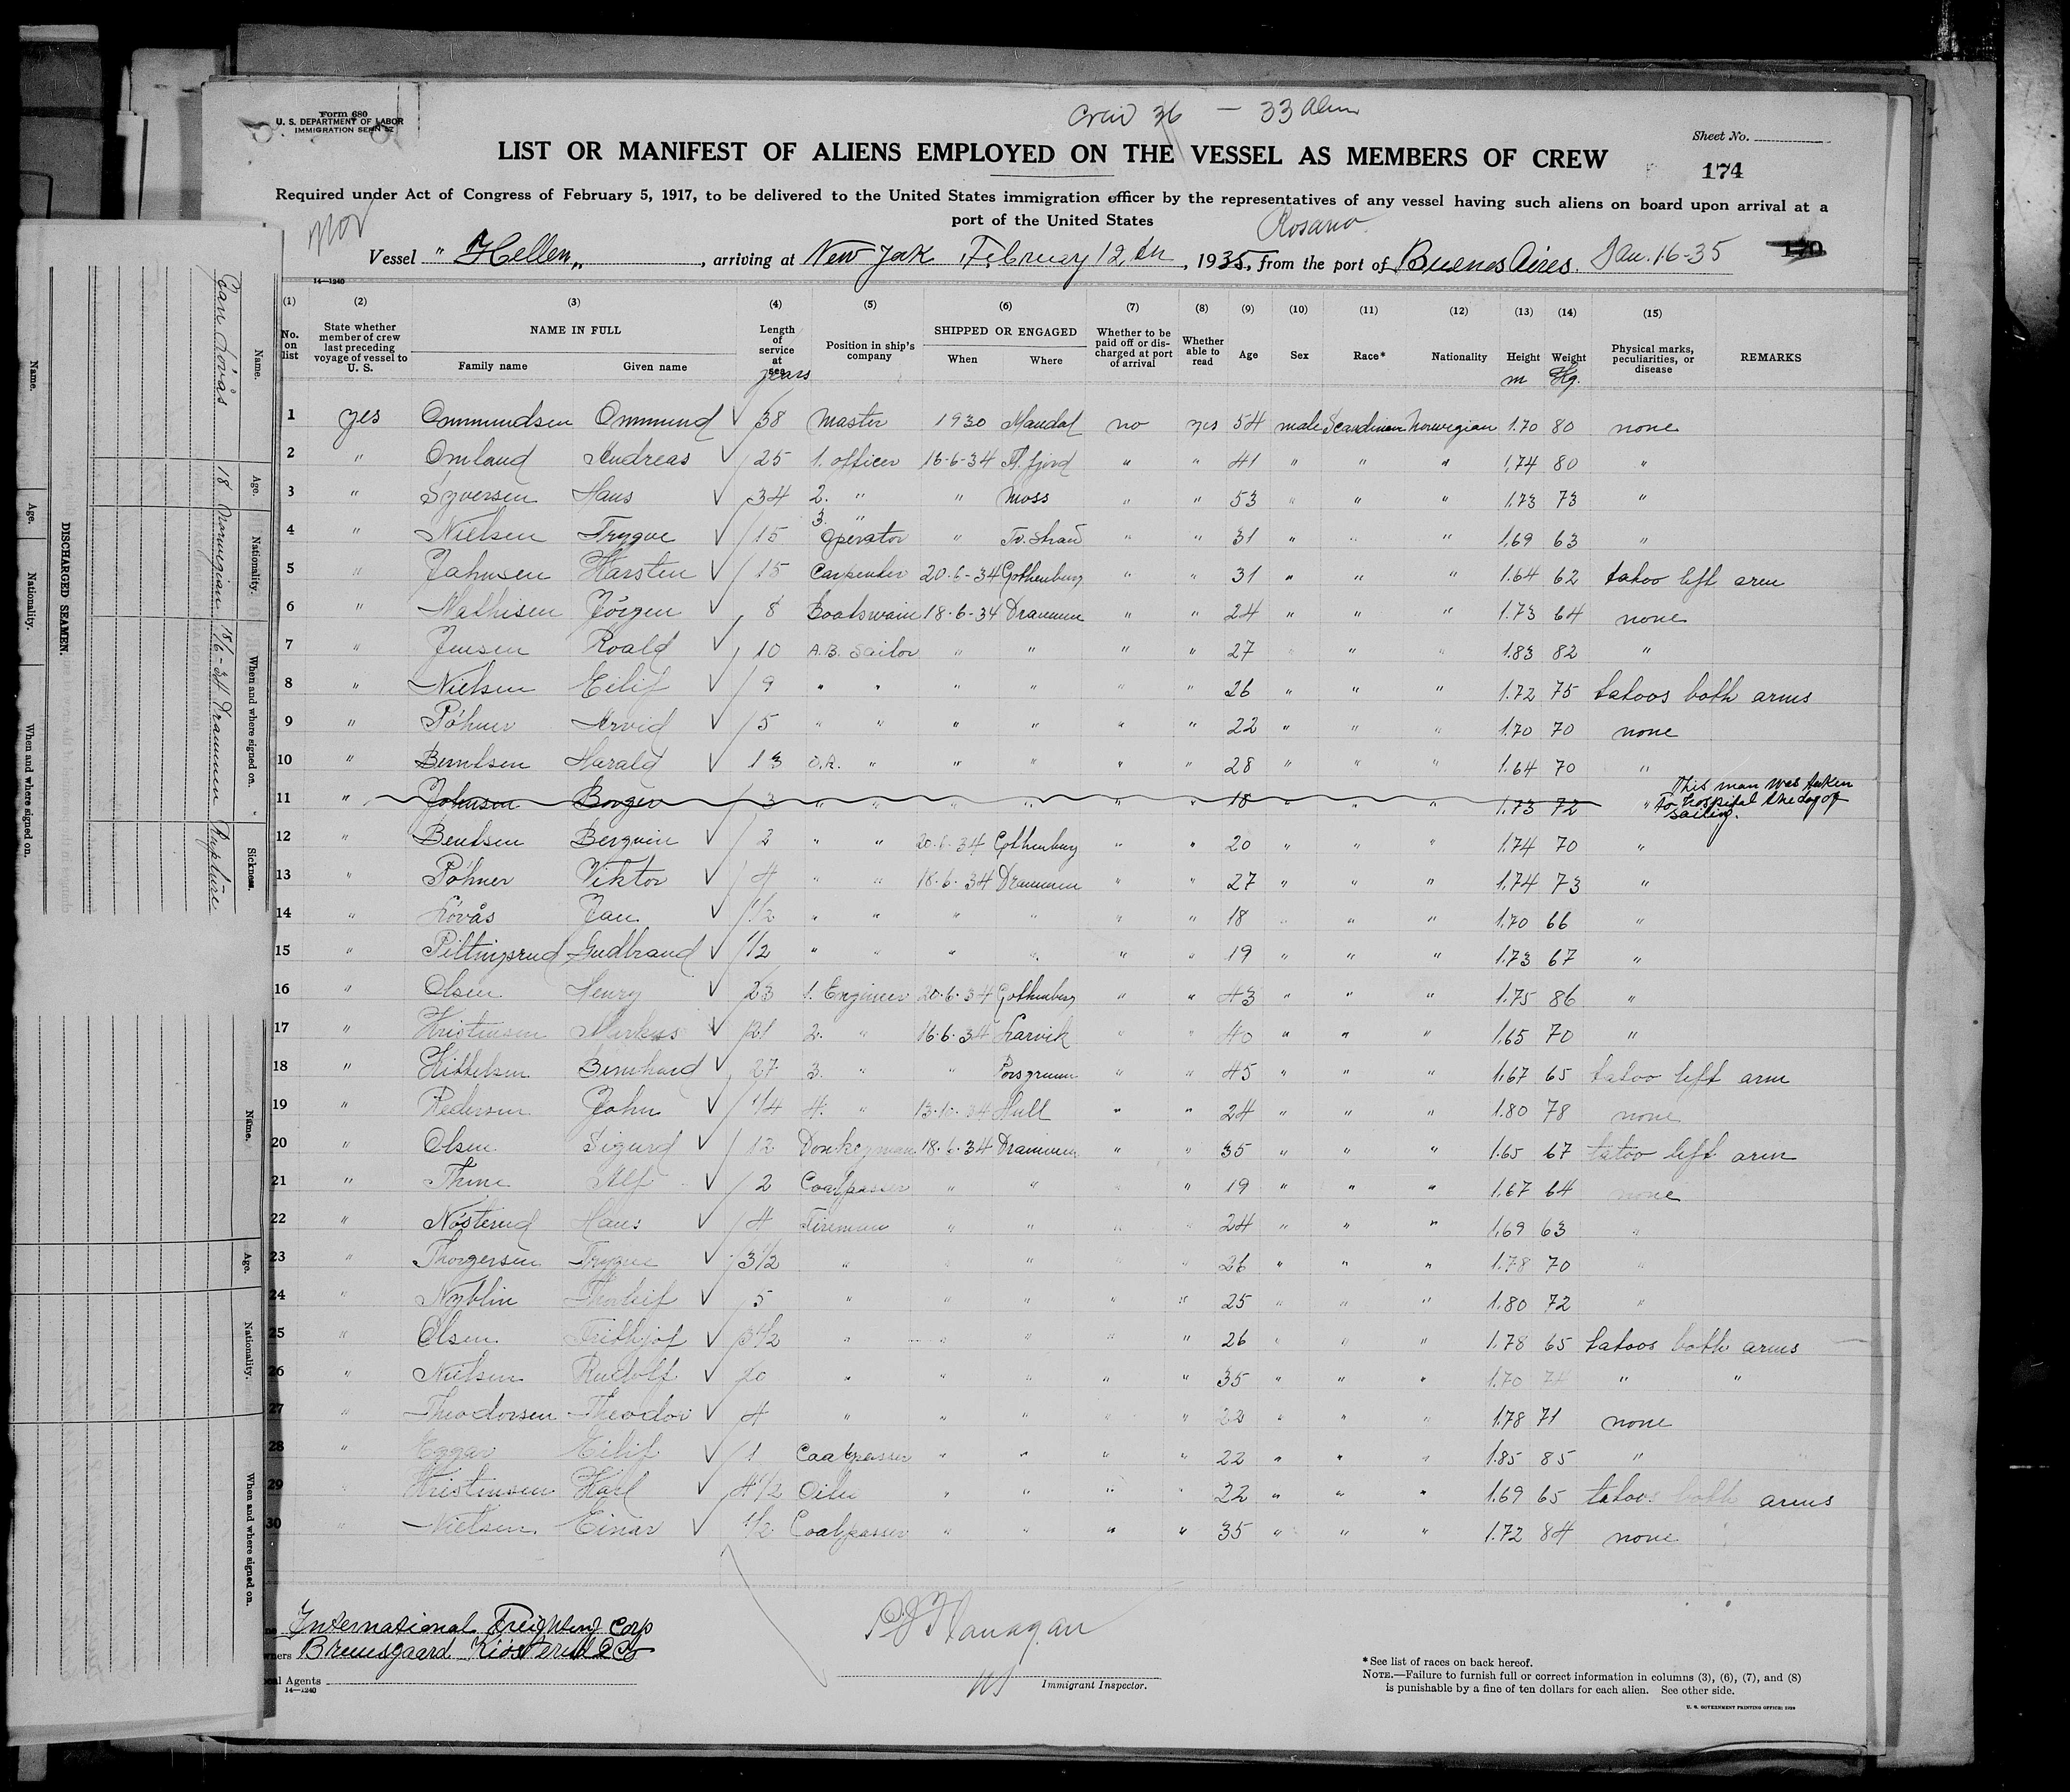 Form 680
U. S. DEPARTMENT OF LABOR
IMMIGRATION SERVICE
Crew 36 — 33 Alien
Sheet No.
LIST OR MANIFEST OF ALIENS EMPLOYED ON THE VESSEL AS MEMBERS OF CREW
174
Required under Act of Congress of February 5, 1917, to be delivered to the United States immigration officer by the representatives of any vessel having such aliens on board upon arrival at a
port of the United States
Nor
Rosario
Vessel "Hellen", arriving at New York February 12th, 1935, from the port of Buenos Aires. Jan. 16-35
170
14—1240
(1) (2) (3) (4) (5) (6) (7) (8) (9) (10) (11) (12) (13) (14) (15)
No. on list
State whether member of crew last preceding voyage of vessel to U. S.
NAME IN FULL
Family name Given name
Length of service at sea
years
Position in ship's company
SHIPPED OR ENGAGED
When Where
Whether to be paid off or discharged at port of arrival
Whether able to read
Age Sex Race* Nationality
Height m
Weight Kg.
Physical marks, peculiarities, or disease
REMARKS
1 yes Ommundsen Ommund √ 38 Master 1930 Mandal no yes 54 male Scandinavian Norwegian 1.70 80 none
2 " Omland Andreas √ 25 1. officer 16-6-34 " " 41 " " " 1.74 80 "
3 " Syversen Hans √ 34 2. " " Moss " " 53 " " " 1.73 73 "
4 " Nielsen Trygve √ 15 3. " Operator " Tv.strand " " 31 " " " 1.69 63 "
5 " Jahnsen Karsten √ 15 Carpenter 20-6-34 Gothenburg " " 31 " " " 1.64 62 tatoo left arm
6 " Mathisen Jörgen √ 8 Boatswain 18-6-34 Drammen " " 24 " " " 1.73 64 none
7 " Jensen Roald √ 10 A.B. Sailor " " " " 27 " " " 1.83 82 "
8 " Nielsen Eilif √ 9 " " " " " " 26 " " " 1.72 75 tatoos both arms
9 " Pöhner Arvid √ 5 " " " " " " 22 " " " 1.70 70 none
10 " Berntsen Harald √ 13 O.A. " " " " " 28 " " " 1.64 70 "
11 " Johnsen Borger 3 " " " " " " 18 " " " 1.73 72 " This man was taken
to hospital the day of
sailing.
12 " Bentsen Bergwin √ 2 " " 20-6-34 Gothenburg " " 20 " " " 1.74 70 "
13 " Pöhner Viktor √ 4 " " 18-6-34 Drammen " " 27 " " " 1.74 73 "
14 " Lövås Jan √ 1/2 " " " " " " 18 " " " 1.70 66 "
15 " Piltingsrud Gudbrand √ 1/2 " " " " " " 19 " " " 1.73 67 "
16 " Olsen Henry √ 23 1. Engineer 20-6-34 Gothenburg " " 43 " " " 1.75 86 "
17 " Kristensen Markus √ 21 2. " 16-6-34 Larvik " " 40 " " " 1.65 70 "
18 " Kittelsen Bernhard √ 27 3. " " Porsgrunn " " 45 " " " 1.67 65 tatoo left arm
19 " Pedersen John √ 1/4 4. " Hull " " 24 " " " 1.80 78 none
20 " Olsen Sigurd √ 12 Donkeyman 18-6-34 Drammen " " 35 " " " 1.65 67 tatoo left arm
21 " Alf √ 2 Coalpasser " " " " 19 " " " 1.67 64 none
22 " Nösterud Hans √ 4 Fireman " " " " 24 " " " 1.69 63 "
23 " Thorgersen Trygve √ 3 1/2 " " " " " 26 " " " 1.78 70 "
24 " Nyblin Thorleif √ 5 " " " " " 25 " " " 1.80 72 "
25 " Olsen Frithjof √ 3 1/2 " " " " " 26 " " " 1.78 65 tatoos both arms
26 " Nielsen Rudolf √ 20 " " " " " 35 " " " 1.70 74 " "
27 " Theodorsen Theodor √ 4 " " " " " 23 " " " 1.78 71 none
28 " Eggar Eilif √ 1 Coalpasser " " " " 22 " " " 1.85 85 "
29 " Kristensen Karl √ 4 1/2 Oiler " " " " 22 " " " 1.69 65 tatoos both arms
30 " Nielsen Einar √ 1/2 Coalpasser " " " " 35 " " " 1.72 84 none
International Freighting Corp
Owners Bruusgaard Kiösterud & Co
Local Agents
14—1240
P J Flanagan
Immigrant Inspector.
* See list of races on back hereof.
NOTE.—Failure to furnish full or correct information in columns (3), (6), (7), and (8)
is punishable by a fine of ten dollars for each alien. See other side.
U. S. GOVERNMENT PRINTING OFFICE: 1929
DISCHARGED SEAMEN.
Name. Age. Nationality. When and where signed on.
Name. Age. Nationality. When and where signed on. Sickness.
Jan Lövås 18 Norwegian 18/6-34 Drammen Rupture
Name. Age. Nationality. When and where signed on.